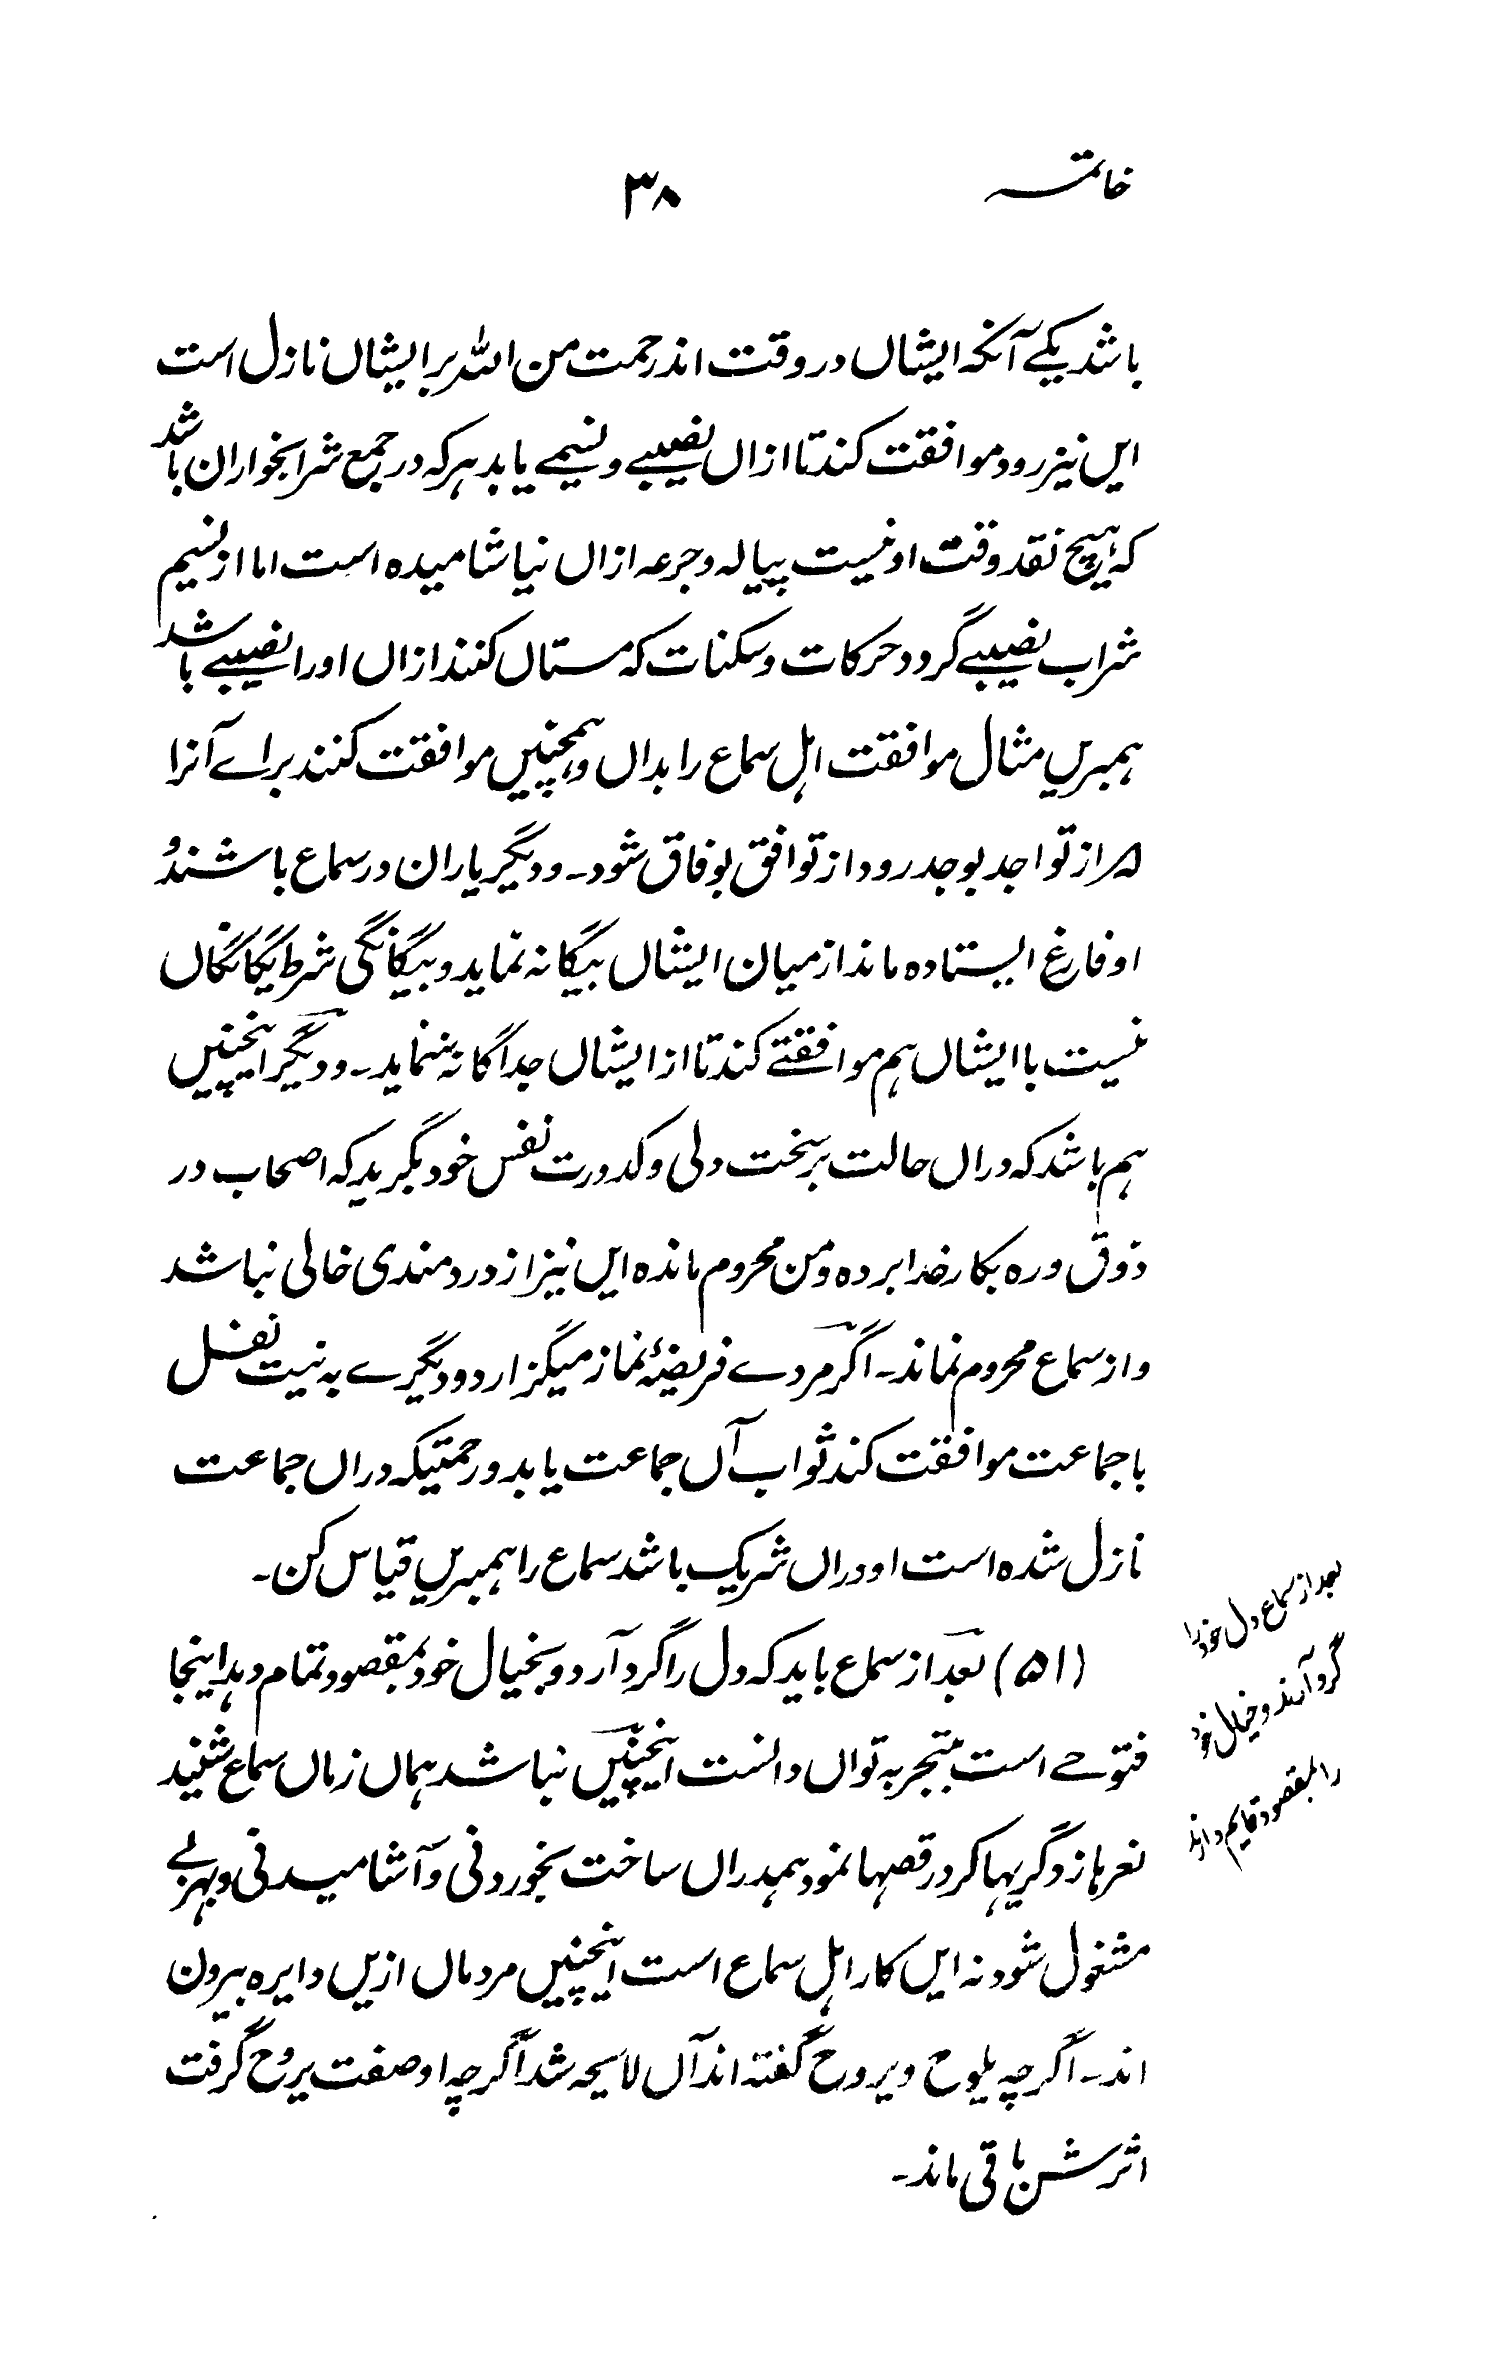 خاتمہ
۳۸
باشد یکے آنکہ ایشاں در وقت اند رحمت من اللہ بر ایشاں نازل است
ایں نیز رود موافقت کند تا ازاں نصیبے و نسیمے یابد ہر کہ در جمع شرابخواران باشد
کہ ہیچ نقد وقت او نیست پیالہ و جرعہ ازاں نیاشامیدہ است اما از نسیم
شراب نصیبے گرد و حرکات و سکنات کہ مستاں کنند ازاں او را نصیبے باشد
ہمبریں مثال موافقت اہل سماع را بداں و ہمچنیں موافقت کنند براے آنرا
کہ از تواجد بوجد رود از توافق بوفاق شود۔ و دیگر یاران در سماع باشند و
او فارغ ایستادہ ماند از میان ایشاں بیگانہ نماید و بیگانگی شرط یگانگاں
نیست با ایشاں ہم موافقتے کند تا از ایشاں جداگانہ ننماید۔ و دیگر اینچنیں
ہم باشد کہ دراں حالت بر سخت دلی و کدورت نفس خود بگرید کہ اصحاب در
ذوق و رہ بکار خدا بردہ و من محروم ماندہ ایں نیز از دردمندی خالی نباشد
و از سماع محروم نماند۔ اگر مردے فریضۂ نماز میگزارد و دیگرے بہ نیت نفل
با جماعت موافقت کند ثواب آں جماعت یابد و رحمتیکہ دراں جماعت
نازل شدہ است او دراں شریک باشد سماع را ہمبریں قیاس کن۔
(۵۱) بعد از سماع باید کہ دل را گرد آرد و بخیال خود بمقصود تمام دہد اینجا
فتوحے است بتجربہ تواں دانست اینچنیں نباشد ہماں زماں سماع شنید
نعرہا زد گریہا کرد رقصہا نمود ہمدراں ساخت بخوردنی و آشامیدنی و بہزلے
مشغول شود نہ ایں کار اہل سماع است اینچنیں مردماں ازیں دایرہ بیرون
اند۔ اگرچہ یلوح و یروح گفتہ اند آں لایحہ شد اگرچہ او صفت یروح گرفت
اثرش باقی ماند۔
بعد از سماع دل خود را
گرد آرند و خیال خود
را بمقصود قایم دارند